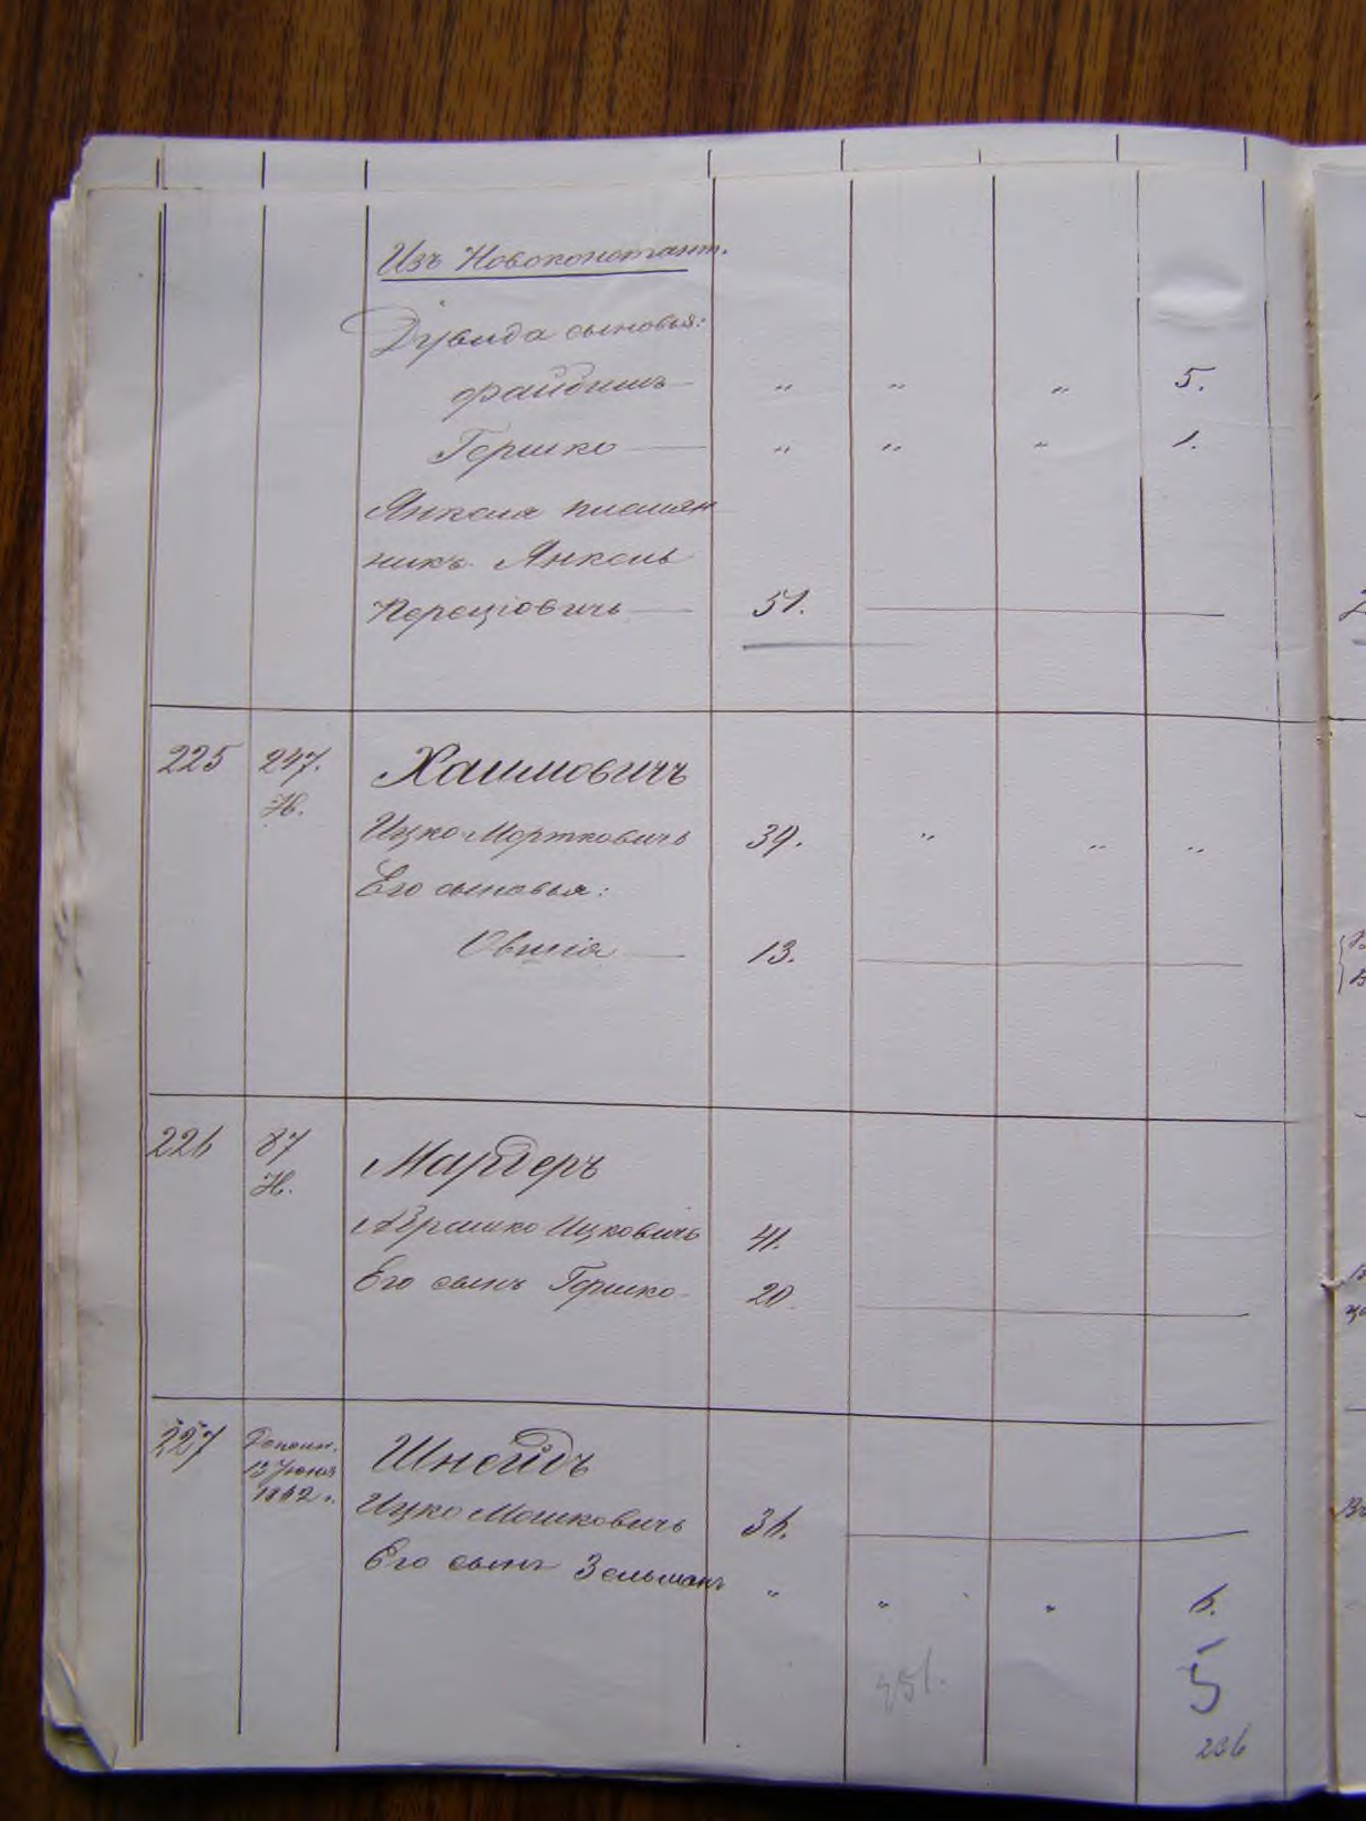 Изъ Новоконстант.
Дувида сыновья:
Файвишъ „ „ „ 5.
Гершко „ „ „ 1.
Янкеля племян
никъ Янкель
Перецовичь 51.
225 247. Хаимовичъ
Н.
Ицко Мортковичь 39. „ „ „
Его сыновья:
Овшія 13.
226 87 Мардеръ
Н.
Абрамко Ицковичь 41.
Его сынъ Гершко 20.
227 Шнейдъ
13 Июня
1862 г.
Ицко Мошковичь 36.
Его сынъ Зельманъ „ „ „ 6.
351.
5
206